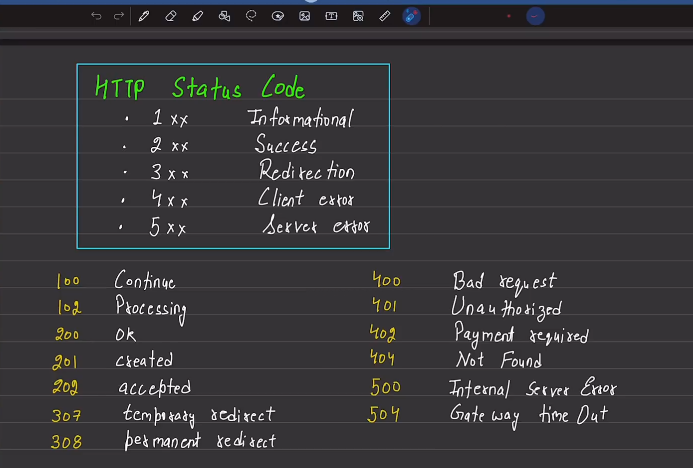 HTTP Status Code
· 1xx Informational
· 2xx Success
· 3xx Redirection
· 4xx Client error
· 5xx Server error
100 Continue
102 Processing
200 OK
201 created
202 accepted
307 temporary redirect
308 permanent redirect
400 Bad request
401 Unauthorized
402 Payment required
404 Not Found
500 Internal Server Error
504 Gate way time Out